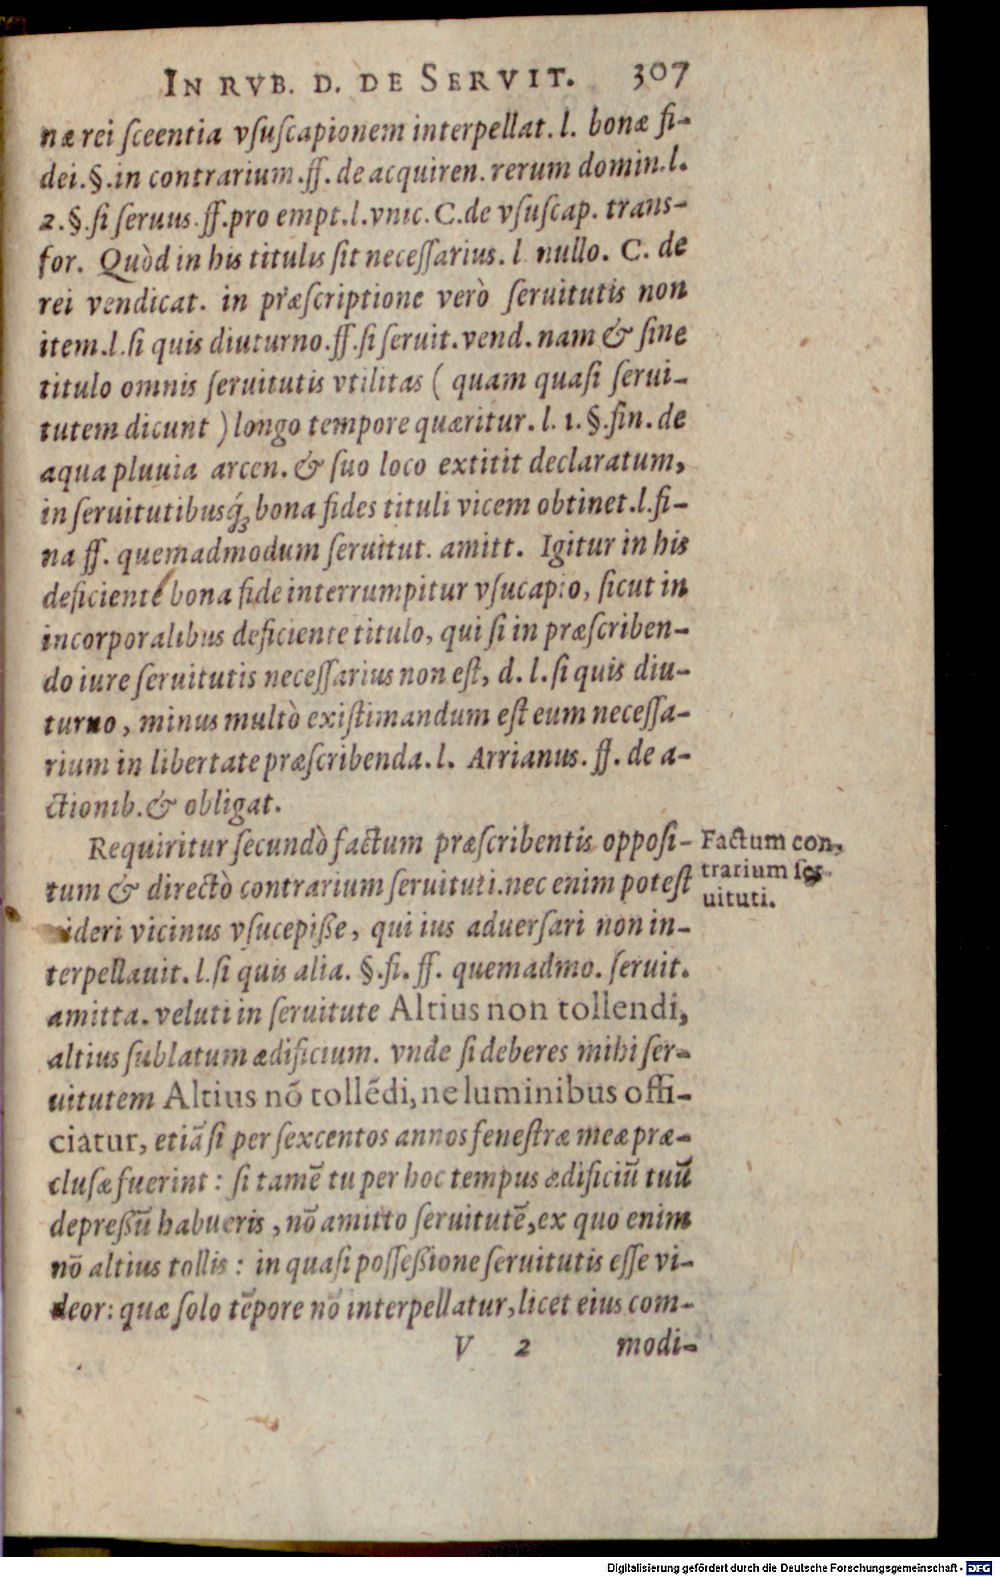 IN RVB. D. DE SERVIT. 307
næ rei sceentia vsuscapionem interpellat. l. bonæ fi-
dei. §. in contrarium. ff. de acquiren. rerum domin. l.
2. §. si seruus. ff. pro empt. l. vnic. C. de vsuscap. trans-
for. Quòd in his titulus sit necessarius. l nullo. C. de
rei vendicat. in præscriptione verò seruitutis non
item. l. si quis diuturno. ff. si seruit. vend. nam & sine
titulo omnis seruitutis vtilitas ( quam quasi serui-
tutem dicunt ) longo tempore quæritur. l. 1. §. fin. de
aqua pluuia arcen. & suo loco extitit declaratum,
in seruitutibusq́; bona fides tituli vicem obtinet. l. fi-
na ff. quemadmodum seruitut. amitt. Igitur in his
deficiente bona fide interrumpitur vsucapio, sicut in
incorporalibus deficiente titulo, qui si in præscriben-
do iure seruitutis necessarius non est, d. l. si quis diu-
turno, minus multò existimandum est eum necessa-
rium in libertate præscribenda. l. Arrianus. ff. de a-
ctionib. & obligat.
Requiritur secundò factum præscribentis opposi-
tum & directò contrarium seruituti. nec enim potest
videri vicinus vsucepiße, qui ius aduersari non in-
terpellauit. l. si quis alia. §. fi. ff. quemadmo. seruit.
amitta. veluti in seruitute Altius non tollendi,
altius sublatum ædificium. vnde si deberes mihi ser-
uitutem Altius nō tollēdi, ne luminibus offi-
ciatur, etiā si per sexcentos annos fenestræ meæ præ-
clusæ fuerint : si tamē tu per hoc tempus ædificiū tuū
depreßū habueris, nō amitto seruitutē, ex quo enim
nō altius tollis : in quasi posseßione seruitutis esse vi-
deor: quæ solo tēpore nō interpellatur, licet eius com-
V 2 modi-
Factum con-
trarium ser-
uituti.
Digitalisierung gefördert durch die Deutsche Forschungsgemeinschaft - DFG